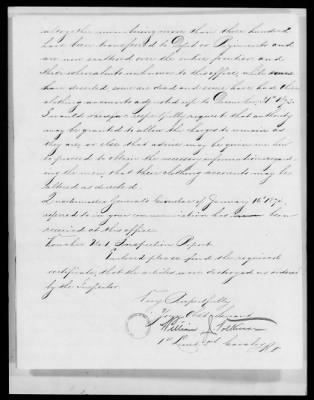 altogether numbering more than three hundred
have been transferred to Dept or Regiments and
are now scattered over the entire frontier and
their whereabouts unknown to this office, while some
have deserted some are dead and some have had their
clothing accounts adjusted up to December 31st 187
I would therefore respectfully request that authority
may be granted to allow the charge to remain as
they are, or else that advice may be given me how
to proceed to obtain the necessary information regard-
ing the men that their clothing accounts may be
as directed.
Quartermaster General's Circular of January 10th 187
referred to in your communication has been
received at this office.
Voucher No 1 Inspection Report
Enclosed please find the required
certificate, that the articles were destroyed as ordered
by the Inspector.
Very Respectfully
Your Obdt Servant
William Volkmar
1st Lieut Cavalry